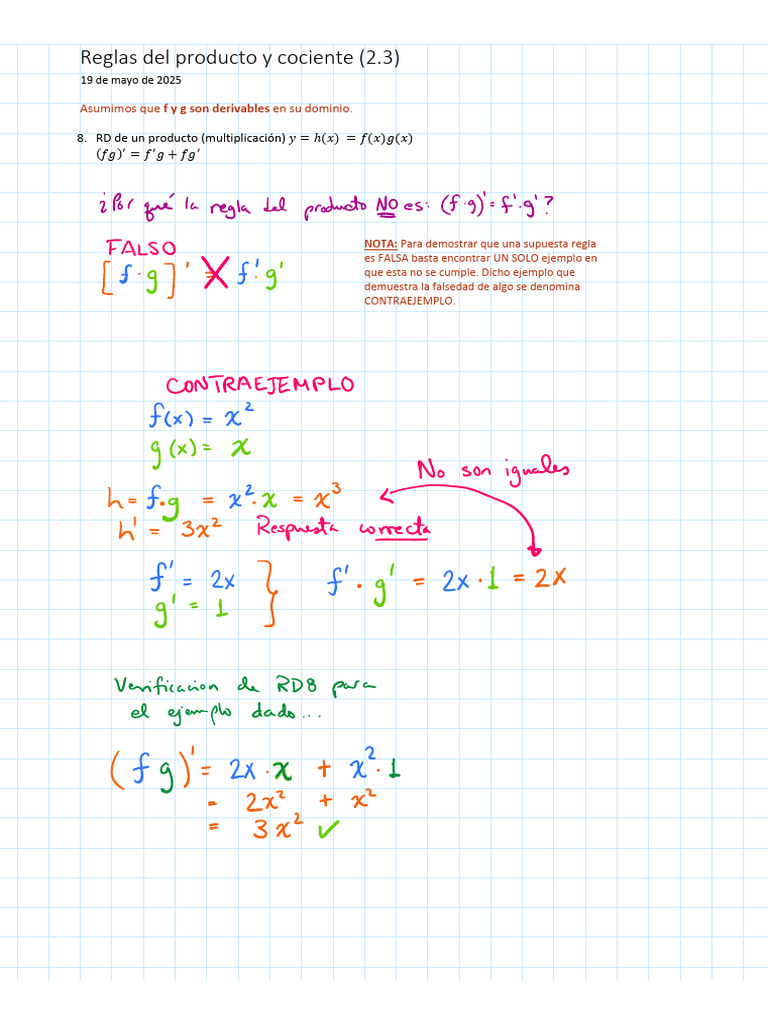 Reglas del producto y cociente (2.3)
19 de mayo de 2025
Asumimos que f y g son derivables en su dominio.
8. RD de un producto (multiplicación) y = h(x) = f(x)g(x)
(fg)′ = f′g + fg′
¿Por qué la regla del producto NO es: (f·g)' = f'·g'?
FALSO
[f·g]' = f'·g'
NOTA: Para demostrar que una supuesta regla
es FALSA basta encontrar UN SOLO ejemplo en
que esta no se cumple. Dicho ejemplo que
demuestra la falsedad de algo se denomina
CONTRAEJEMPLO.
CONTRAEJEMPLO
f(x) = x²
g(x) = x
No son iguales
h = f·g = x²·x = x³
h' = 3x² Respuesta correcta
f' = 2x } f'·g' = 2x·1 = 2x
g' = 1
Verificacion de RD8 para
el ejemplo dado...
(fg)' = 2x·x + x²·1
= 2x² + x²
= 3x² ✓